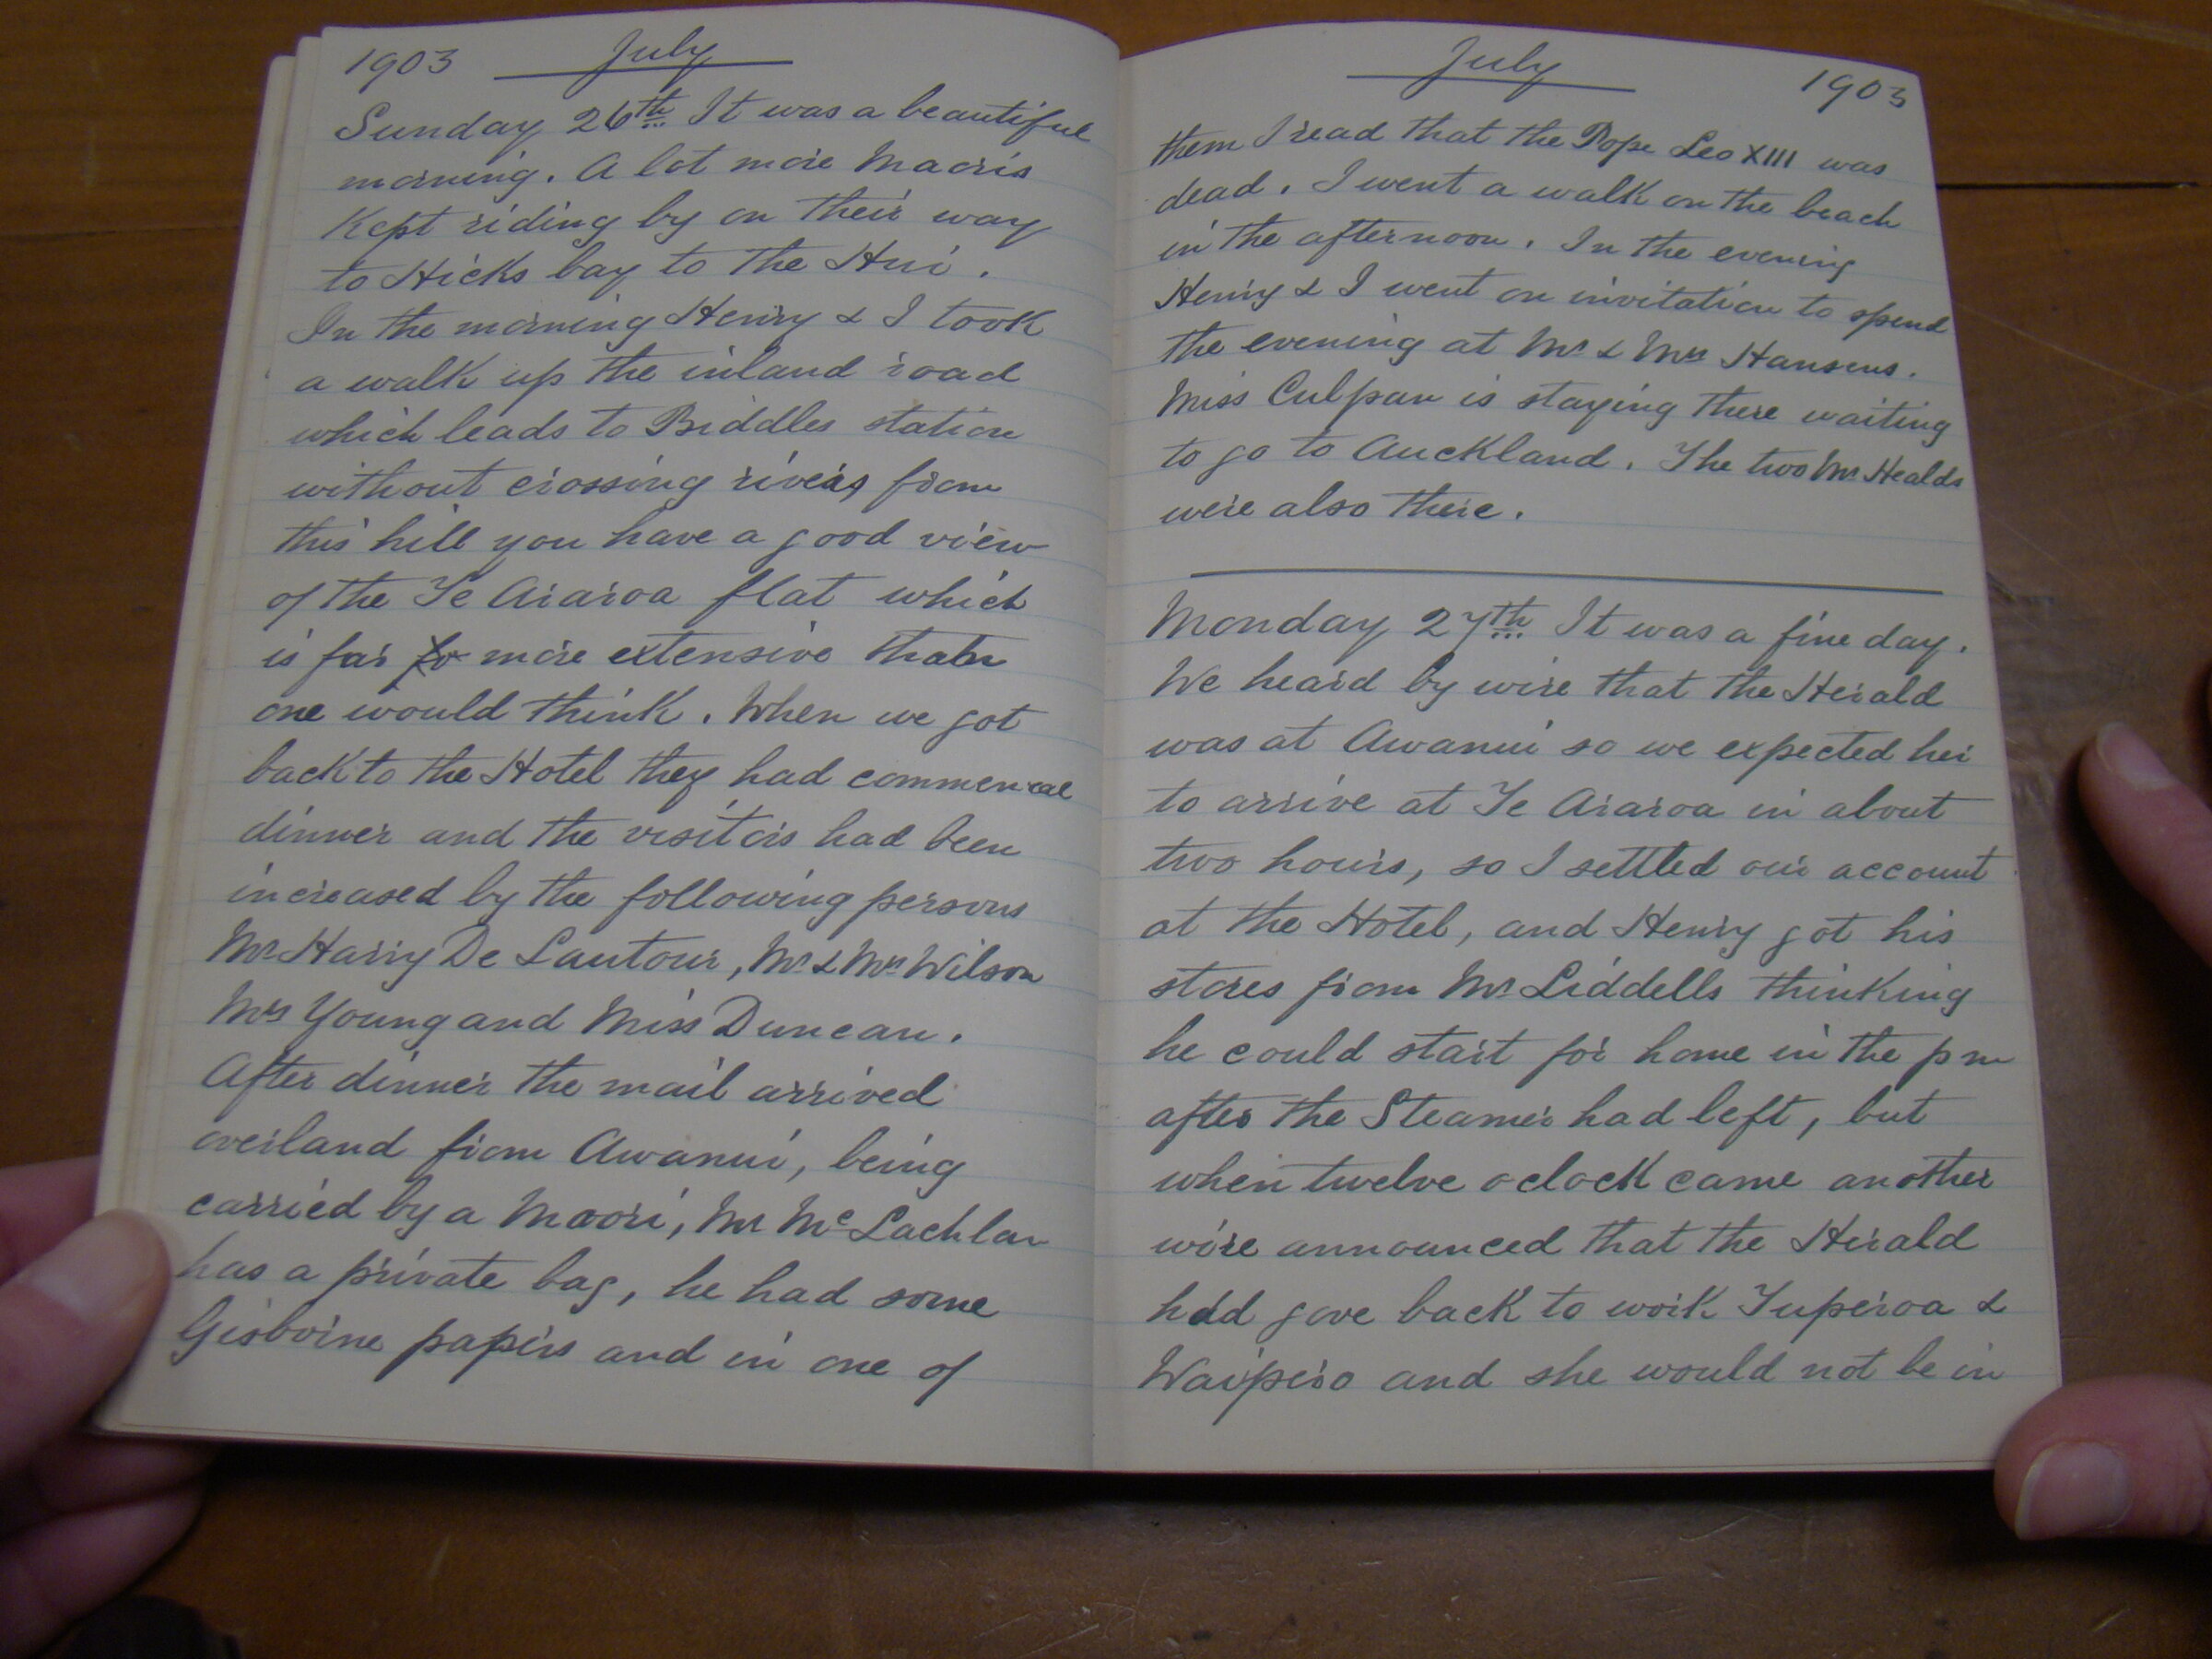 1903 July
Sunday 26th It was a beautiful
morning. A lot more Maoris
Kept riding by on their way
to Hicks bay to the Hui.
In the morning Henry & I took
a walk up the inland road
which leads to Biddles station
without crossing rivers from
this hill you have a good view
of the Te Araroa flat which
is far more extensive than
one would think. When we got
back to the Hotel they had commenced
dinner and the visitors had been
increased by the following persons
Mr Harry De Lautour, Mr & Mrs Wilson
Mrs Young and Miss Duncan.
After dinner the mail arrived
overland from Awanui, being
carried by a Maori, Mr McLachlan
has a private bag, he had some
Gisborne papers and in one of
July 1903
them I read that the Pope Leo XIII was
dead. I went a walk on the beach
in the afternoon. In the evening
Henry & I went on invitation to spend
the evening at Mr & Mrs Hansens.
Miss Culpan is staying there waiting
to go to Auckland. The two Mr Healds
were also there.
Monday 27th It was a fine day.
We heard by wire that the Herald
was at Awanui so we expected her
to arrive at Te Araroa in about
two hours, so I settled our account
at the Hotel, and Henry got his
stores from Mr Liddells thinking
he could start for home in the pm
after the Steamer had left, but
when twelve oclock came another
wire announced that the Herald
had gone back to work Tuperoa &
Waipiro and she would not be in